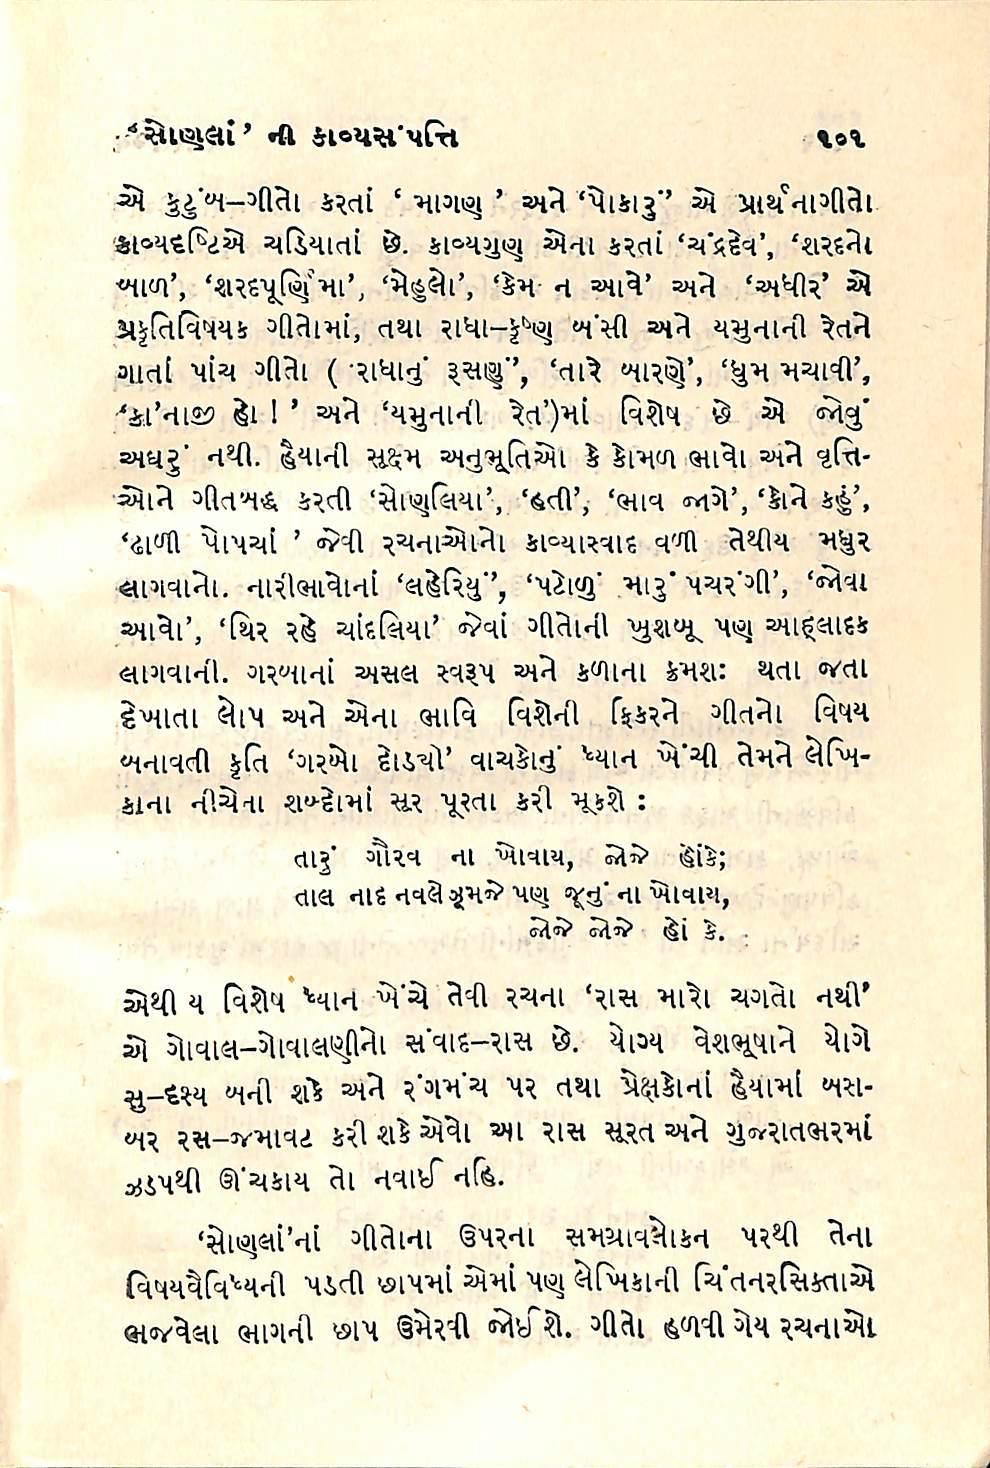 ‘સોણલાં’ ની કાવ્યસંપત્તિ ૧૦૧
એ કુટુંબ–ગીતો કરતાં ‘ માગણ ’ અને ‘પોકારું’ એ પ્રાર્થનાગીતો
કાવ્યદૃષ્ટિએ ચડિયાતાં છે. કાવ્યગુણ એના કરતાં ‘ચંદ્રદેવ’, ‘શરદનો
બાળ’, ‘શરદપૂર્ણિમા’, ‘મેહુલો’, ‘કેમ ન આવે’ અને ‘અધીર’ એ
પ્રકૃતિવિષયક ગીતોમાં, તથા રાધા–કૃષ્ણ બંસી અને યમુનાની રેતને
ગાતાં પાંચ ગીતો ( ‘રાધાનું રૂસણું’, ‘તારે બારણે’, ‘ધુમ મચાવી’,
‘કા’નાજી હો ! ’ અને ‘યમુનાની રેત’)માં વિશેષ છે એ જોવું
અઘરું નથી. હૈયાની સૂક્ષ્મ અનુભૂતિઓ કે કોમળ ભાવો અને વૃત્તિ-
ઓને ગીતબદ્ધ કરતી ‘સોણલિયા’, ‘હતી’, ‘ભાવ જાગે’, ‘કોને કહું’,
‘ઢાળી પોપચાં ’ જેવી રચનાઓનો કાવ્યાસ્વાદ વળી તેથીય મધુર
લાગવાનો. નારીભાવોનાં ‘લહેરિયું’, ‘પટોળું મારું પચરંગી’, ‘જોવા
આવો’, ‘થિર રહે ચાંદલિયા’ જેવાં ગીતોની ખુશબૂ પણ આહ્‌લાદક
લાગવાની. ગરબાનાં અસલ સ્વરૂપ અને કળાના ક્રમશઃ થતા જતા
દેખાતા લોપ અને એના ભાવિ વિશેની ફિકરને ગીતનો વિષય
બનાવતી કૃતિ ‘ગરબો દોડ્યો’ વાચકોનું ધ્યાન ખેંચી તેમને લેખિ-
કાના નીચેના શબ્દોમાં સૂર પૂરતા કરી મૂકશે :
તારું ગૌરવ ના ખોવાય, જોજે હોંકે;
તાલ નાદ નવલે ઝૂમજે પણ જૂનું ના ખોવાય,
જોજે જોજે હોં કે.
એથી ય વિશેષ ધ્યાન ખેંચે તેવી રચના ‘રાસ મારો ચગતો નથી’
એ ગોવાલ–ગોવાલણીનો સંવાદ–રાસ છે. યોગ્ય વેશભૂષાને યોગે
સુ–દૃશ્ય બની શકે અને રંગમંચ પર તથા પ્રેક્ષકોનાં હૈયામાં બરા-
બર રસ–જમાવટ કરી શકે એવો આ રાસ સૂરત અને ગુજરાતભરમાં
ઝડપથી ઊંચકાય તો નવાઈ નહિ.
‘સોણલાં’નાં ગીતોના ઉપરના સમગ્રાવલોકન પરથી તેના
વિષયવૈવિધ્યની પડતી છાપમાં એમાં પણ લેખિકાની ચિંતનરસિક્તાએ
ભજવેલા ભાગની છાપ ઉમેરવી જોઈશે. ગીતો હળવી ગેય રચનાઓ